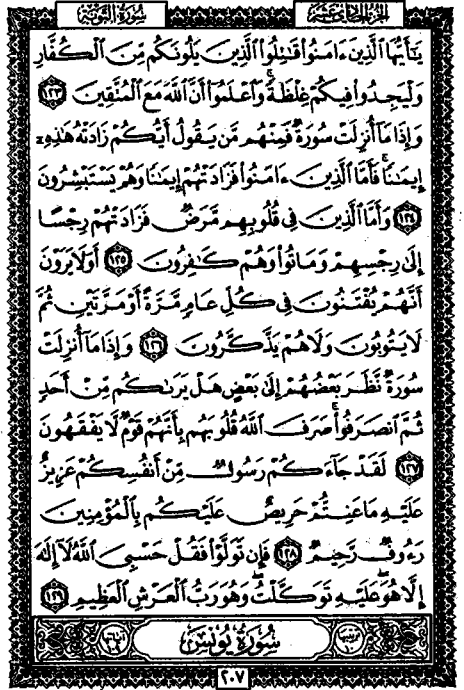 سُورَةُ التَّوْبَةِ
الجزء الحادي عشر
يَٰٓأَيُّهَا ٱلَّذِينَ ءَامَنُوا۟ قَٰتِلُوا۟ ٱلَّذِينَ يَلُونَكُم مِّنَ ٱلْكُفَّارِ
وَلْيَجِدُوا۟ فِيكُمْ غِلْظَةً ۚ وَٱعْلَمُوٓا۟ أَنَّ ٱللَّهَ مَعَ ٱلْمُتَّقِينَ ١٢٣
وَإِذَا مَآ أُنزِلَتْ سُورَةٌ فَمِنْهُم مَّن يَقُولُ أَيُّكُمْ زَادَتْهُ هَٰذِهِۦٓ
إِيمَٰنًا ۚ فَأَمَّا ٱلَّذِينَ ءَامَنُوا۟ فَزَادَتْهُمْ إِيمَٰنًا وَهُمْ يَسْتَبْشِرُونَ
١٢٤ وَأَمَّا ٱلَّذِينَ فِى قُلُوبِهِم مَّرَضٌ فَزَادَتْهُمْ رِجْسًا
إِلَىٰ رِجْسِهِمْ وَمَاتُوا۟ وَهُمْ كَٰفِرُونَ ١٢٥ أَوَلَا يَرَوْنَ
أَنَّهُمْ يُفْتَنُونَ فِى كُلِّ عَامٍ مَّرَّةً أَوْ مَرَّتَيْنِ ثُمَّ
لَا يَتُوبُونَ وَلَا هُمْ يَذَّكَّرُونَ ١٢٦ وَإِذَا مَآ أُنزِلَتْ
سُورَةٌ نَّظَرَ بَعْضُهُمْ إِلَىٰ بَعْضٍ هَلْ يَرَىٰكُم مِّنْ أَحَدٍ
ثُمَّ ٱنصَرَفُوا۟ ۚ صَرَفَ ٱللَّهُ قُلُوبَهُم بِأَنَّهُمْ قَوْمٌ لَّا يَفْقَهُونَ
١٢٧ لَقَدْ جَآءَكُمْ رَسُولٌ مِّنْ أَنفُسِكُمْ عَزِيزٌ
عَلَيْهِ مَا عَنِتُّمْ حَرِيصٌ عَلَيْكُم بِٱلْمُؤْمِنِينَ
رَءُوفٌ رَّحِيمٌ ١٢٨ فَإِن تَوَلَّوْا۟ فَقُلْ حَسْبِىَ ٱللَّهُ لَآ إِلَٰهَ
إِلَّا هُوَ ۖ عَلَيْهِ تَوَكَّلْتُ ۖ وَهُوَ رَبُّ ٱلْعَرْشِ ٱلْعَظِيمِ ١٢٩
سُورَةُ يُونُسَ
٢٠٧